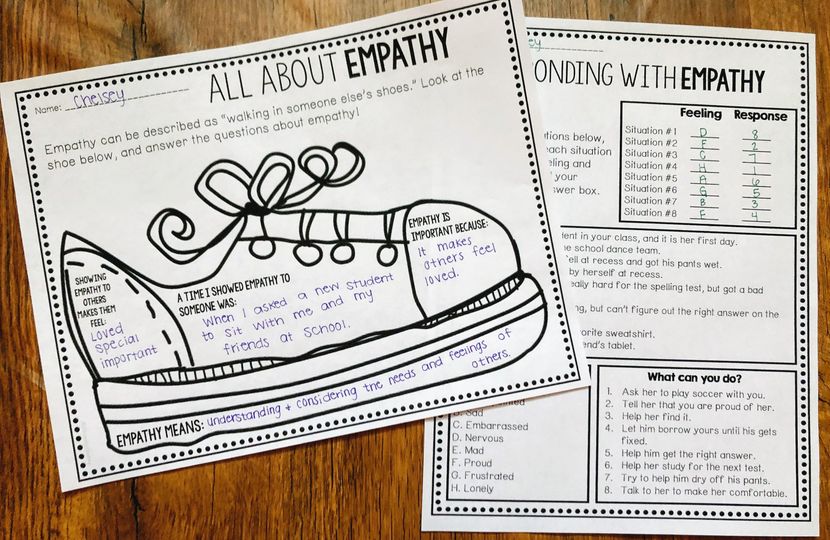 Name: Chelsey
ALL ABOUT EMPATHY
Empathy can be described as "walking in someone else's shoes." Look at the
shoe below, and answer the questions about empathy!
SHOWING
EMPATHY TO
OTHERS
MAKES THEM
FEEL:
Loved
special
important
A TIME I SHOWED EMPATHY TO
SOMEONE WAS:
When I asked a new student
to sit with me and my
friends at school.
EMPATHY IS
IMPORTANT BECAUSE:
It makes
others feel
loved.
EMPATHY MEANS: understanding + considering the needs and feelings of
others.
WITH EMPATHY
Feeling Response
Situation #1 D 8
Situation #2 F 2
Situation #3 C 7
Situation #4 H 1
Situation #5 A 6
Situation #6 G 5
Situation #7 B 3
Situation #8 E 4
below,
situation
and
your
box.
in your class, and it is her first day.
school dance team.
fell at recess and got his pants wet.
by herself at recess.
really hard for the spelling test, but got a bad
but can't figure out the right answer on the
sweatshirt.
tablet.
B. Sad
C. Embarrassed
D. Nervous
E. Mad
F. Proud
G. Frustrated
H. Lonely
What can you do?
1. Ask her to play soccer with you.
2. Tell her that you are proud of her.
3. Help her find it.
4. Let him borrow yours until his gets
fixed.
5. Help him get the right answer.
6. Help her study for the next test.
7. Try to help him dry off his pants.
8. Talk to her to make her comfortable.